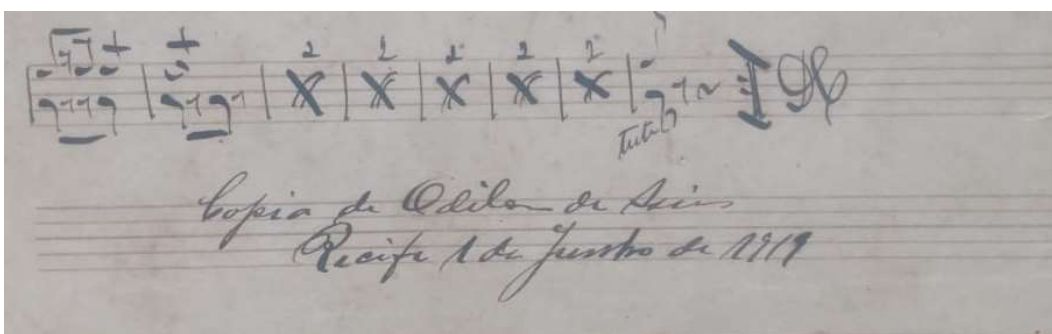 2 2 2 2 2
tutti
Copia de Odilon de
Recife 1 de Junho de 1919